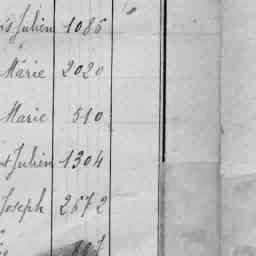 Julien 1086
Marie 2020
Marie 510
Julien 1304
Joseph 2672